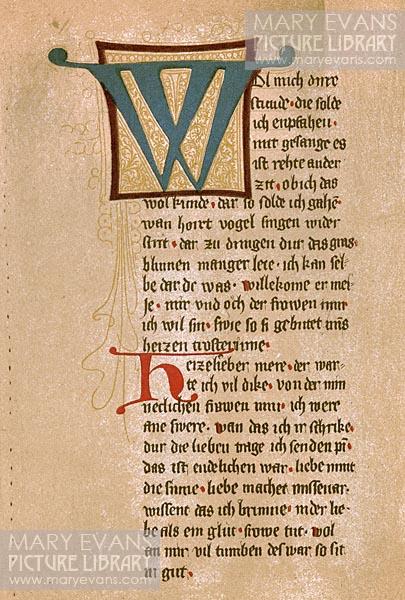 MARY EVANS
PICTURE LIBRARY
www.maryevans.com
Wol mich dirre
stunde · die solde
ich enpfahen ·
mit gesange es
ist rehte ander
zit · ob ich das
wol kunde · dar so solde ich gahē
wan hort vogel singen wider
strit · dar zu dringen dur das gras
blumen manger leie · ich kan sel-
be dar dc was · willekome er mei-
je · mir vnd och der frowen min
ich wil sin · swie so si gebutet vns
herzen
Herzelieber mere · der war-
te ich vil dike · von der min
neclichen frowen min · ich were
ane swere · wan das ich ir schrike ·
dur die lieben trage ich senden pī ·
das ist endelichen war · liebe nimt
die sinne · liebe machet missevar ·
wissent das ich brinne · in der lie-
be als ein glut · frowe tut · wol
an mir vil tumben des war so sit
ir gut ·
MARY EVANS
PICTURE LIBRARY
www.maryevans.com